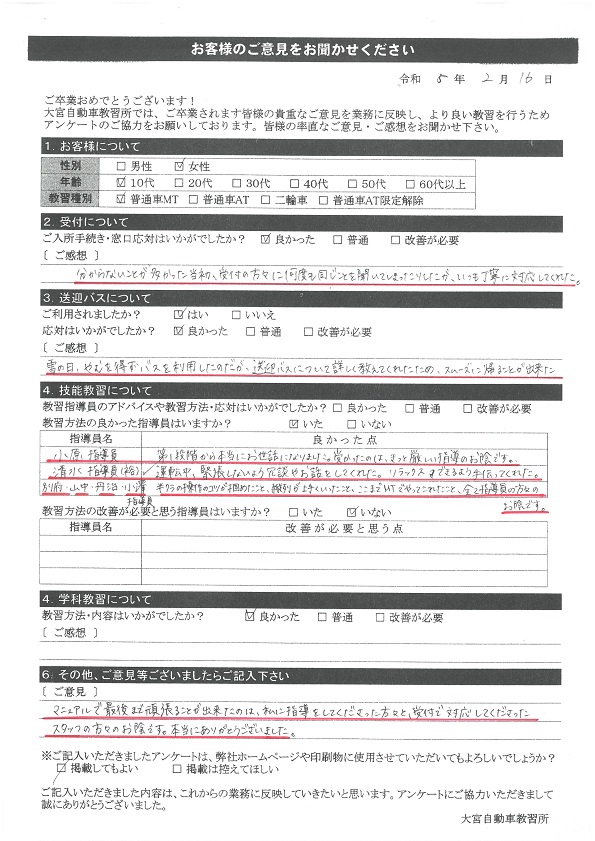 お客様のご意見をお聞かせください
令和 5 年 2 月 16 日
ご卒業おめでとうございます！
大宮自動車教習所では、ご卒業されます皆様の貴重なご意見を業務に反映し、より良い教習を行うため
アンケートのご協力をお願いしております。皆様の率直なご意見・ご感想をお聞かせ下さい。
1. お客様について
性別 □ 男性 ☑ 女性
年齢 ☑ 10代 □ 20代 □ 30代 □ 40代 □ 50代 □ 60代以上
教習種別 ☑ 普通車MT □ 普通車AT □ 二輪車 □ 普通車AT限定解除
2. 受付について
ご入所手続き・窓口応対はいかがでしたか？ ☑ 良かった □ 普通 □ 改善が必要
〔 ご感想 〕
分からないことが多かった当初、受付の方々に何度も同じことを聞いてしまったりしたが、いつも丁寧に対応してくれた。
3. 送迎バスについて
ご利用されましたか？ ☑ はい □ いいえ
応対はいかがでしたか？ ☑ 良かった □ 普通 □ 改善が必要
〔 ご感想 〕
雪の日、やむを得ずバスを利用したのだが、送迎バスについて詳しく教えてくれたため、スムーズに帰ることが出来た
4. 技能教習について
教習指導員のアドバイスや教習方法・応対はいかがでしたか？ □ 良かった □ 普通 □ 改善が必要
教習方法の良かった指導員はいますか？ ☑ いた □ いない
指導員名 良かった点
小原 指導員 第1段階から本当にお世話になりました。受かったのは、きっと厳しい指導のお陰です。
清水 指導員 運転中、緊張しないよう冗談やお話をしてくれた。リラックスできるよう手伝ってくれた。
別府・山中・丹治・小澤 半クラの操作のコツが掴めたこと、縦列が上手くいったこと、ここまでMTでやってこれたこと、全て指導員の方々の
指導員 お陰です。
教習方法の改善が必要と思う指導員はいますか？ □ いた ☑ いない
指導員名 改善が必要と思う点
4. 学科教習について
教習方法・内容はいかがでしたか？ ☑ 良かった □ 普通 □ 改善が必要
〔 ご感想 〕
6. その他、ご意見等ございましたらご記入下さい
〔 ご意見 〕
マニュアルで最後まで頑張ることが出来たのは、私に指導をしてくださった方々と、受付で対応してくださった
スタッフの方々のお陰です。本当にありがとうございました。
※ご記入いただきましたアンケートは、弊社ホームページや印刷物に使用させていただいてもよろしいでしょうか？
☑ 掲載してもよい □ 掲載は控えてほしい
ご記入いただきました内容は、これからの業務に反映していきたいと思います。アンケートにご協力いただきまして
誠にありがとうございました。
大宮自動車教習所